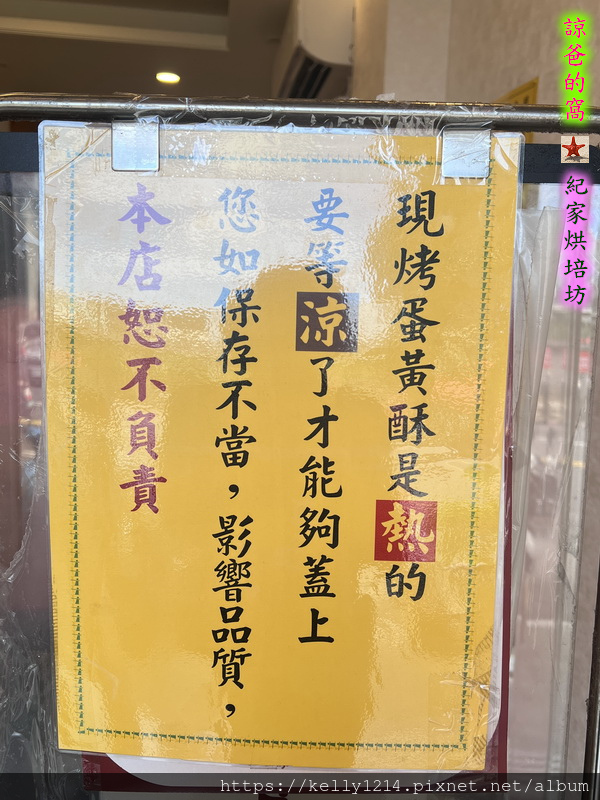 現烤蛋黃酥是熱的
要等涼了才能夠蓋上
您如保存不當，影響品質，
本店恕不負責
諒爸的窩
紀家烘培坊
https://kelly1214.pixnet.net/album